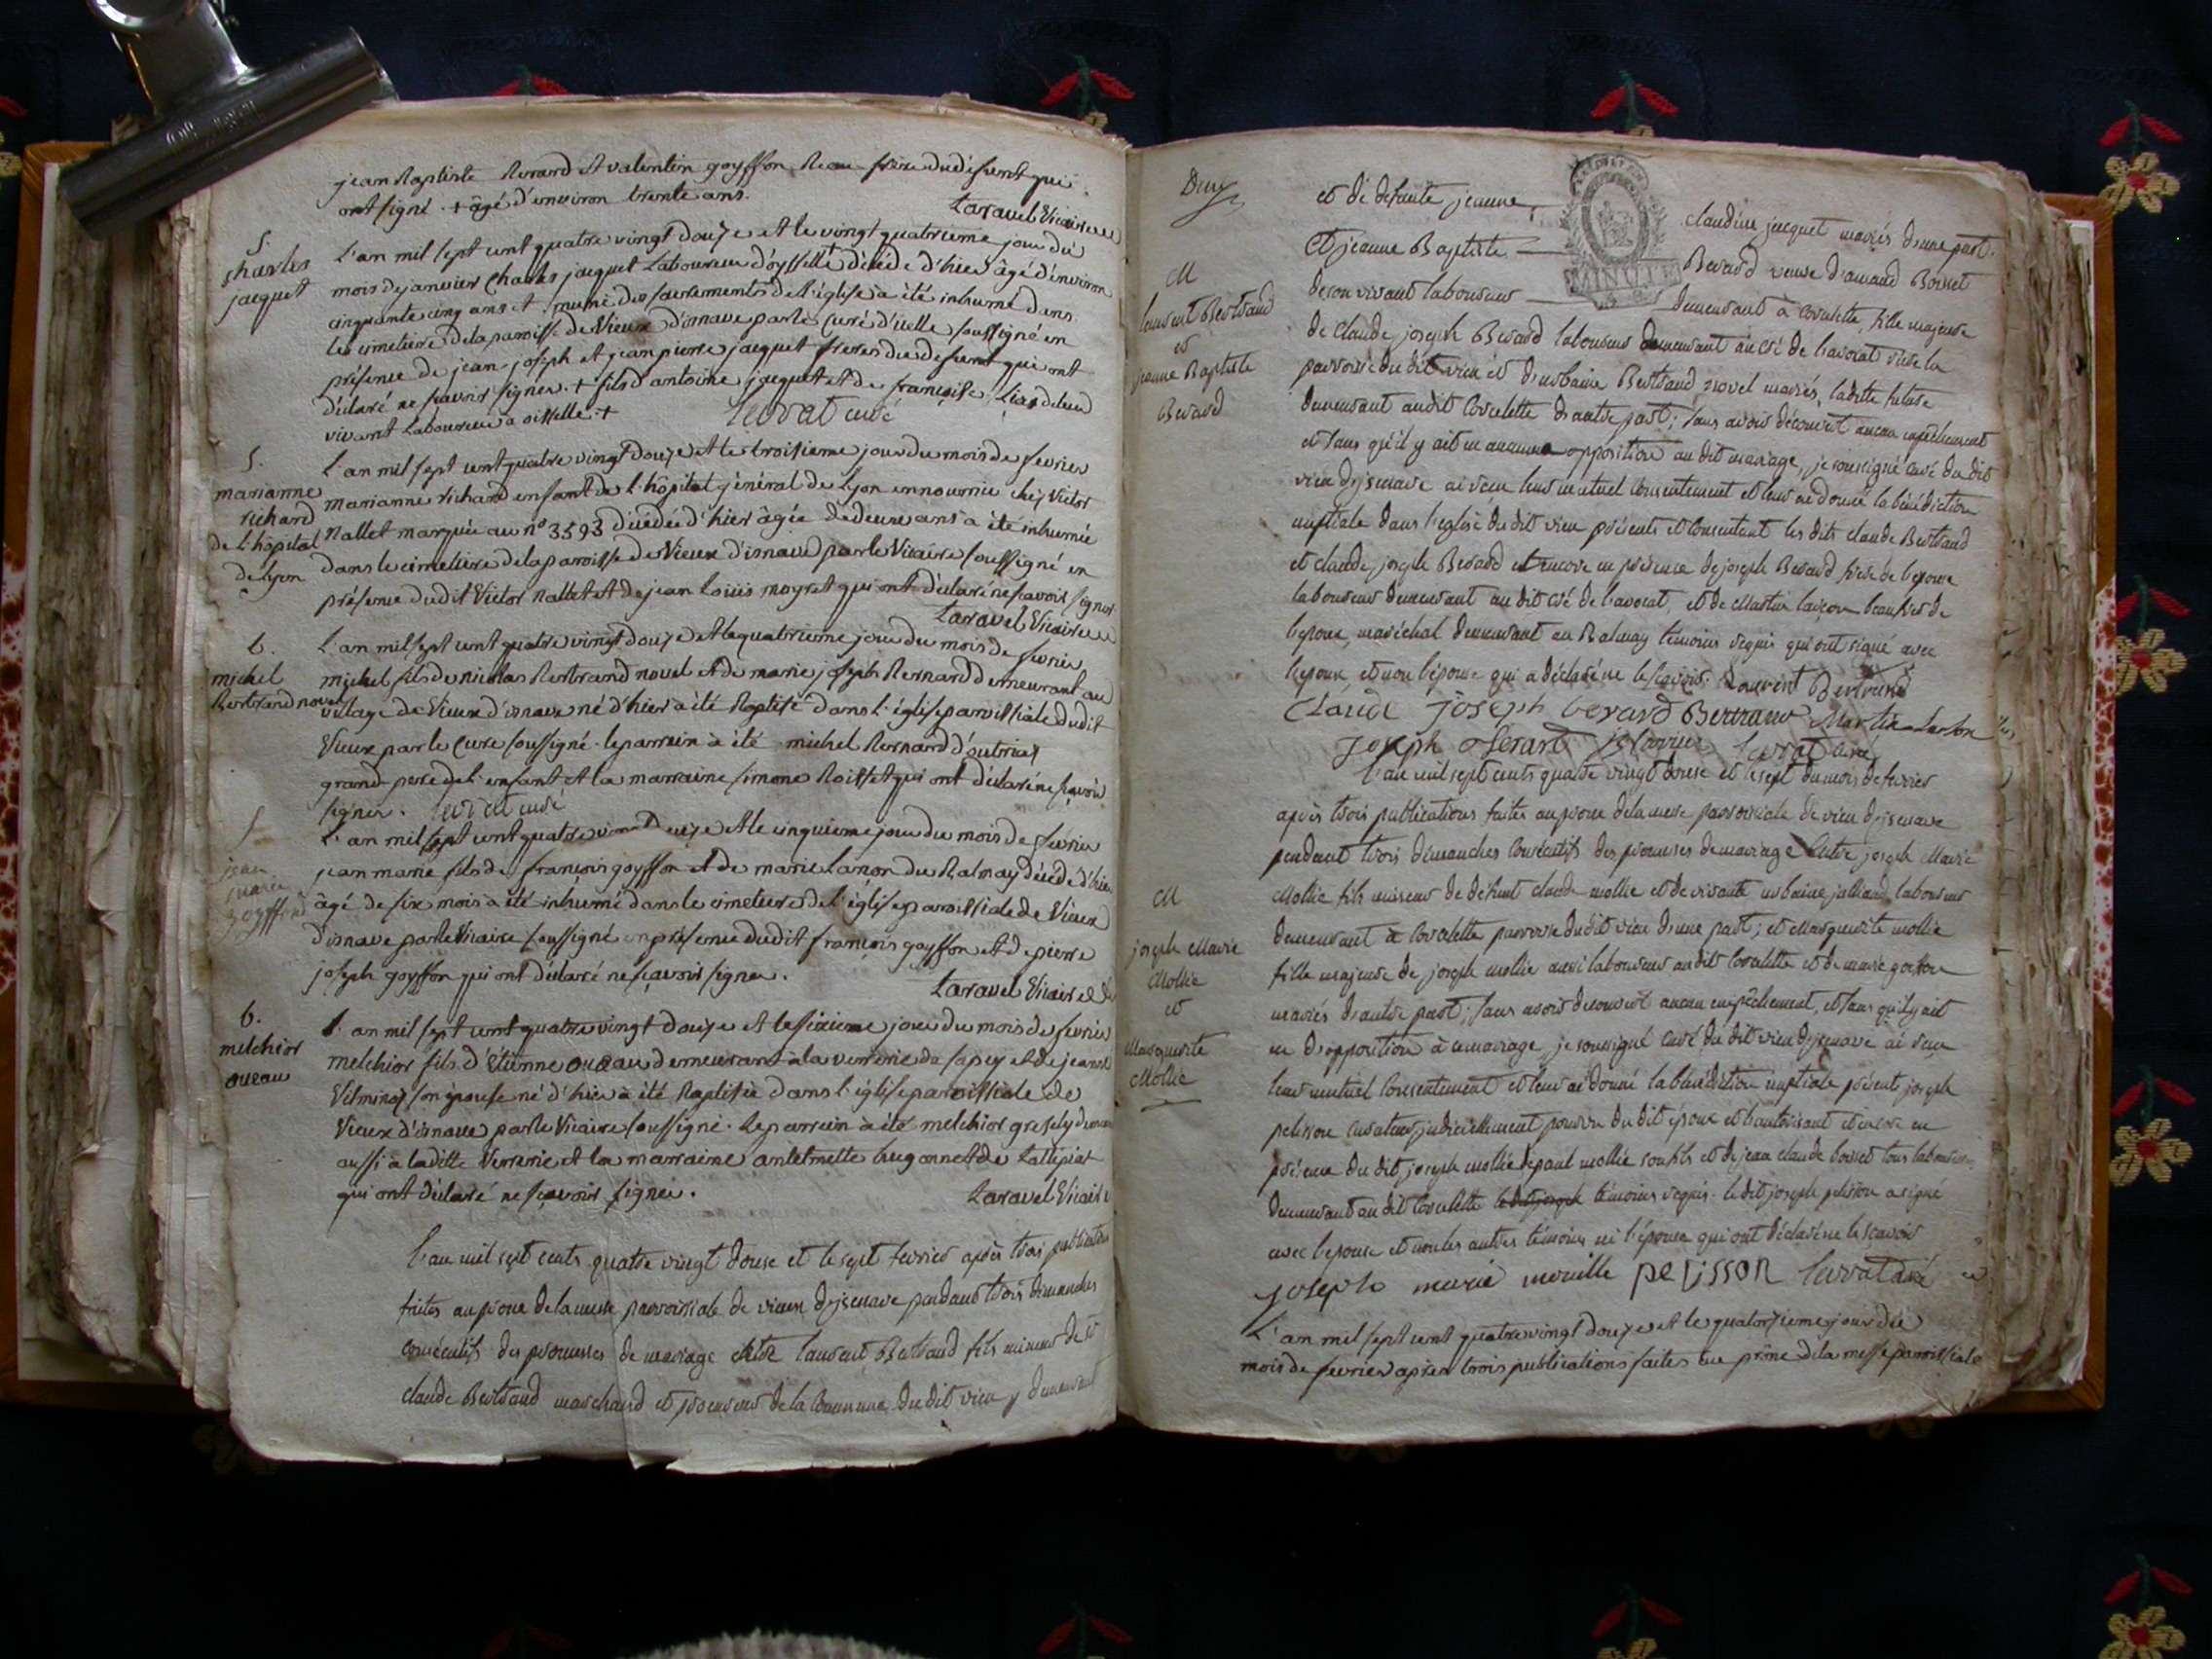 jean Baptiste Berard et valentin goyffon Beau frere du défunt qui
ont signé. + âgé d'environ trente ans.
Taravel Vicaire
S.
charles
jacquet
L'an mil sept cent quatre vingt douze et le vingt quatrieme jour du
mois de janvier Charles jacquet Laboureur d'oysselle décédé d'hier âgé d'environ
cinquante cinq ans et + muni des sacrements de l'église a été inhumé dans
le cimetiere de la paroisse de Vieux d'isnave par le curé d'icelle soussigné en
présence de jean joseph et jean pierre jacquet freres du defunt qui ont
déclaré ne scavoir signer. + fils d'antoine jacquet et de françoise
vivant Laboureur a oisselle +
Levrat curé
S.
marianne
richard
de l'hôpital
de Lyon
L'an mil sept cent quatre vingt douze et le troisieme jour du mois de fevrier
marianne richard enfant de l'hôpital général de Lyon en nourrice chez Victor
Nallet marquée au n° 3593 décédée d'hier âgée de deux ans a été inhumée
dans le cimetiere de la paroisse de Vieux d'isnave par le Vicaire soussigné en
présence dudit Victor Nallet et de jean Louis moyret qui ont déclaré ne scavoir signer
Taravel Vicaire
b.
michel
Bertrand novel
L'an mil sept cent quatre vingt douze et le quatrieme jour du mois de fevrier
michel fils de nicolas Bertrand novel et de marie joseph Bernard demeurant au
village de Vieux d'isnave né d'hier a été Baptisé dans l'église paroissiale dudit
Vieux par le Curé soussigné. le parrain a été michel Bernard d'outriaz
grand pere de l'enfant et la marraine simone Boisset qui ont déclaré ne sçavoir
signer. Levrat curé
S
jean
marie
goyffon
L'an mil sept cent quatre vingt douze et le cinquieme jour du mois de fevrier
jean marie fils de françois goyffon et de marie Lanon du Balmay décédé d'hier
âgé de six mois a été inhumé dans le cimetiere de l'église paroissiale de Vieux
d'isnave par le Vicaire soussigné en présence dudit françois goyffon et de pierre
joseph goyffon qui ont déclaré ne sçavoir signer.
Taravel Vicaire
b.
melchior
oueau
L'an mil sept cent quatre vingt douze et le sixieme jour du mois de fevrier
melchior fils d'étienne oueau demeurant à la verrerie de sapey et de jeanne
Velminoz son épouse né d'hier a été Baptisé dans l'église paroissiale de
Vieux d'isnave par le Vicaire soussigné. Le parrain a été melchior gresely
aussi à la ditte Verrerie et la marraine antelmette hugonnet de Lattipiat
qui ont déclaré ne sçavoir signer.
Taravel Vicaire
l'an mil sept cents quatre vingt douse et le sept fevrier après trois publications
faites au prone de la messe parroissiale de vieu d'jsenave pendant trois dimanches
consécutifs des promesses de mariage entre laurent Bertrand fils mineur de
claude Bertrand marchand et procureur de la commune du dit vieu y demeurant
Duy
et de defunte jeanne
claudine jacquet mariés d'une part.
MINUTE
M
laurent Bertrand
et
jeanne Baptiste
Berard
Et jeanne Baptiste
Berard veuve d'amand Borsset
de son vivant laboureur
demeurant à Corcelette, fille majeure
de Claude joseph Berard laboureur demeurant au cré de l'avocat rière la
parroisse du dit vieu et d'urbaine Bertrand novel mariés, ladite future
demeurant audit Corcelette d'autre part; sans avoir découvert aucun empêchement
et sans qu'il y ait eu aucune opposition au dit mariage, je soussigné curé du dit
vieu d'jsenave ai reçu leur mutuel consentement et leur ai donné la bénédiction
nuptiale dans l'eglise du dit vieu présents et consentant les dits claude Bertrand
et claude joseph Berard et encore en présence de joseph Berard frère de l'épouse
laboureur demeurant au dit cré de l'avocat, et de Martin lançon beaufrere de
l'epoux, maréchal demeurant au Balmay témoins requis qui ont signé avec
l'epoux, et non l'épouse qui a déclaré ne le sçavoir. Laurent Bertrand
Claude joseph berard Bertrand Martin Lanson
Joseph Berard Levrat curé
l'an mil sept cents quatre vingt douse et le sept du mois de fevrier
après trois publications faites au prone de la messe parroissiale de vieu d'jsenave
pendant trois dimanches consécutifs des promesses de mariage Entre joseph Marie
M
joseph Marie
Mollie
et
Marguerite
Mollie
Mollie fils mineur de défunt claude mollie et de vivante urbaine jalliard laboureur
demeurant à Corcelette parroisse du dit vieu d'une part; et Marguerite mollie
fille majeure de joseph mollie aussi laboureur au dit Corcelette et de marie
mariés d'autre part; sans avoir decouvert aucun empêchement, et sans qu'il y ait
eu d'opposition à ce mariage, je soussigné curé du dit vieu d'jsenave ai reçu
leur mutuel consentement et leur ai donné la bénédiction nuptiale présents joseph
pelisson curateur judiciellement pourvu du dit époux et l'autorisant et encore en
présence du dit joseph mollie de paul mollie son fils et de jean claude borsset tous laboureurs
demeurant au dit Corcelette le dit joseph témoins requis. le dit joseph pelisson a signé
avec l'epoux et non les autres témoins ni l'épouse qui ont déclaré ne le sçavoir
joseph marie morille pelisson Levrat curé
L'an mil sept cent quatre vingt douze et le quatorzieme jour du
mois de fevrier après trois publications faites au prône de la messe paroissiale